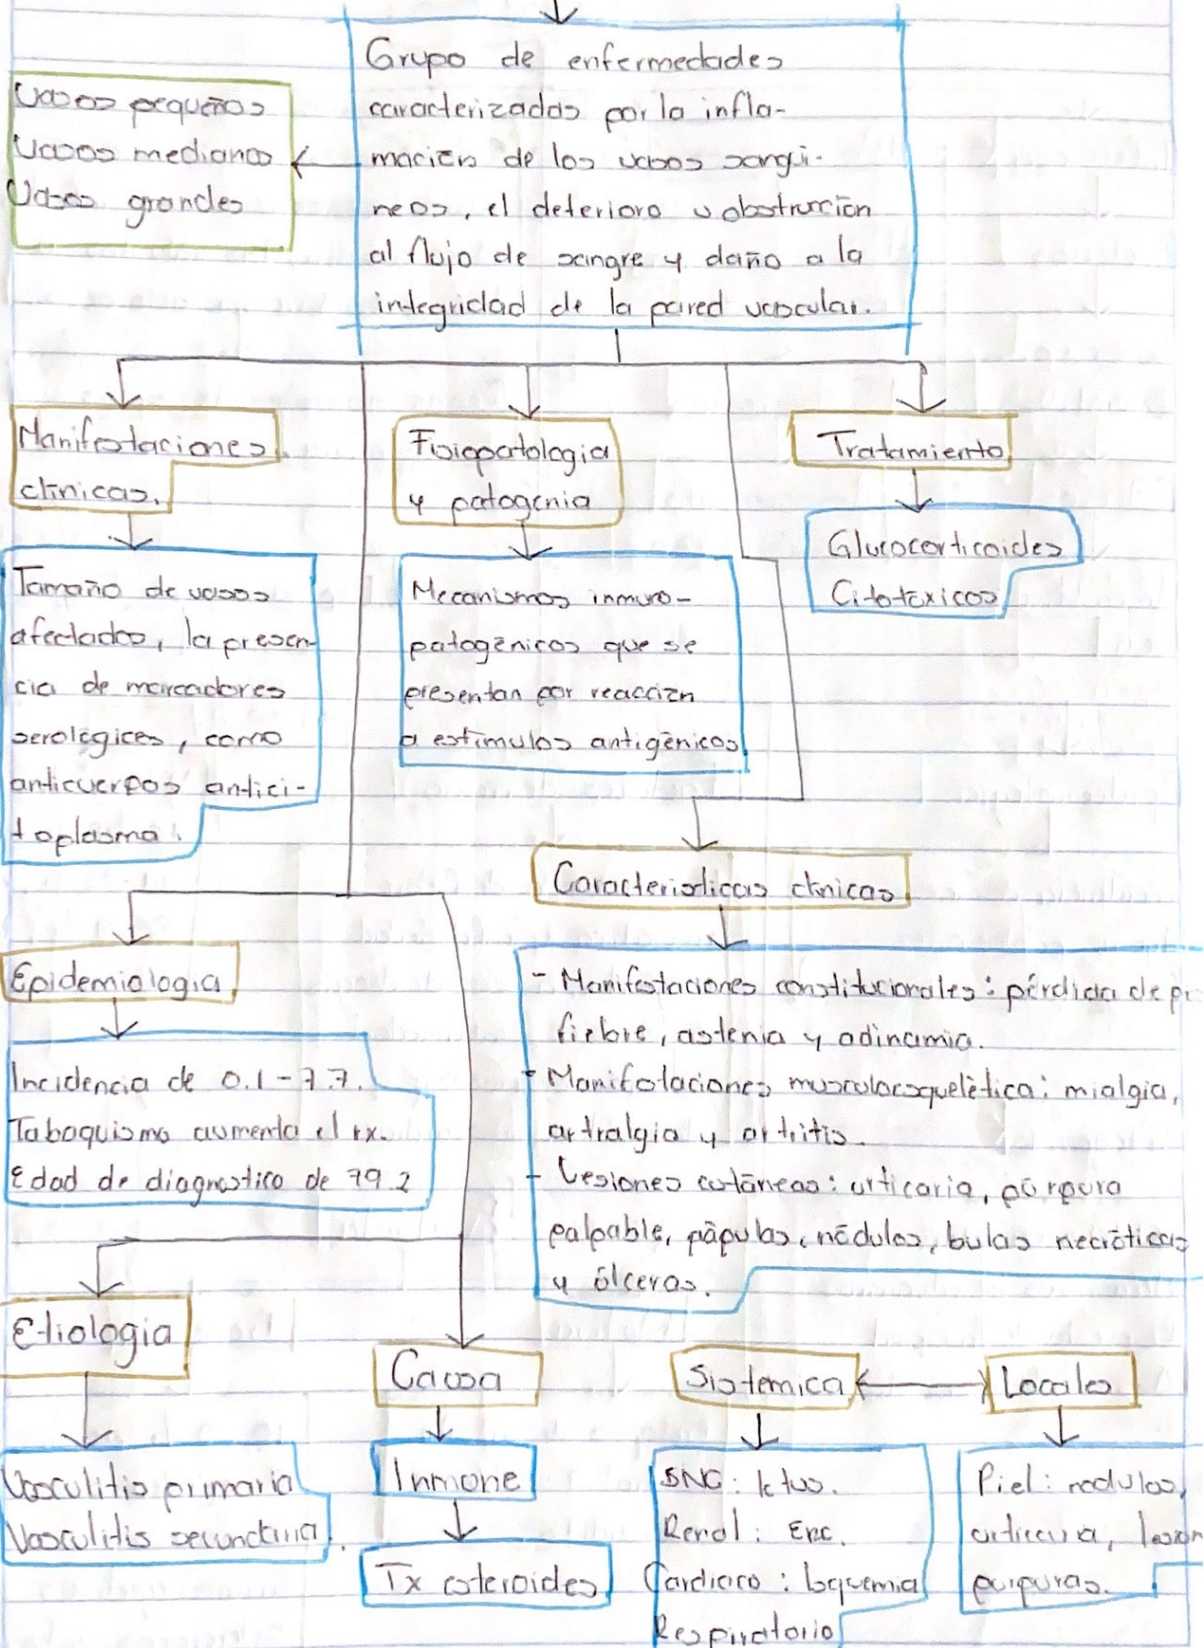 Grupo de enfermedades
caracterizadas por la infla-
mación de los vasos sangui-
neos, el deterioro u obstrucción
al flujo de sangre y daño a la
integridad de la pared vascular.
Vasos pequeños
Vasos medianos
Vasos grandes
Manifestaciones
clínicas.
Tamaño de vasos
afectados, la presen-
cia de marcadores
serológicos, como
anticuerpos antici-
toplasma.
Fisiopatologia
y patogenia
Mecanismos inmuno-
patogénicos que se
presentan por reacción
a estímulos antigénicos
Tratamiento
Glucocorticoides
Citotóxicos
Caracteristicas clínicas
- Manifestaciones constitucionales: pérdida de
fiebre, astenia y adinamia.
- Manifestaciones musculoesquelética: mialgia,
artralgia y artritis.
- Lesiones cutáneas: urticaria, púrpura
palpable, pápulas, nódulos, bulas necróticas
y úlceras.
Epidemiologia
Incidencia de 0.1-7.7.
Tabaquismo aumenta el rx.
Edad de diagnostico de 79.2
Etiologia
Vasculitis primaria
Vasculitis secundaria.
Causa
Inmune
Tx esteroides
Sistemica
SNC: Ictus.
Renal: Enc.
Cardiaco: Isquemia
Respiratorio
Locales
Piel: nodulos,
urticaria,
purpuras.